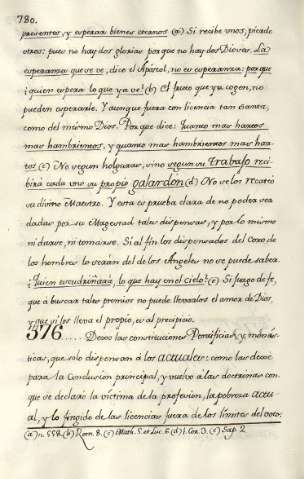 780.
presentes, y esperar bienes eternos (a) Si recibe unos, pierde
otros; pues no hay dos glorias porque no hay dos Dioses. La
esperanza que se ve, dice el Apóstol, no es esperanza: porque
¿quien espera lo que ya ve? (b) El fruto que ya cogen, no
pueden esperarle. Y aunque fuera con licencia tan santa,
como del mismo Dios. Porque dice: Quanto mas hartos
mas hambrientos, y quanto mas hambrientos mas har-
tos (c) No segun holguras, sino segun su trabajo reci-
birá cada uno su propio galardón (d) No ve los recates
su divino Maestro. Y esta es prueba clara de no poder ser
dadas por su Magestad tales dispensas, y por lo mismo
ni durar, ni tomarse. Si al fin los dispensados del Coro de
los hombres lo serán del de los Angeles no se puede saber.
¿Quien escudriñará, lo que hay en el cielo? (e) Si juego de fe,
que á buscar tales premios no puede llevarlos el amor de Dios,
y que si los lleva el propio, es al precipicio.
376 .... Dexo las constituciones Pontificias y monás-
ticas, que solo dispensan á los actuales: como las dexé
para la Conclusion principal, y vuelvo á las doctrinas con
que se declaró la víctima de la profesion, la pobreza actu-
al, y lo fingido de las licencias fuera de los límites del voto.
(a) n. 558. (b) Rom. 8. (c) Math. 5. et Luc. 6. (d) 1. Cor. 3. (e) Sap. 2